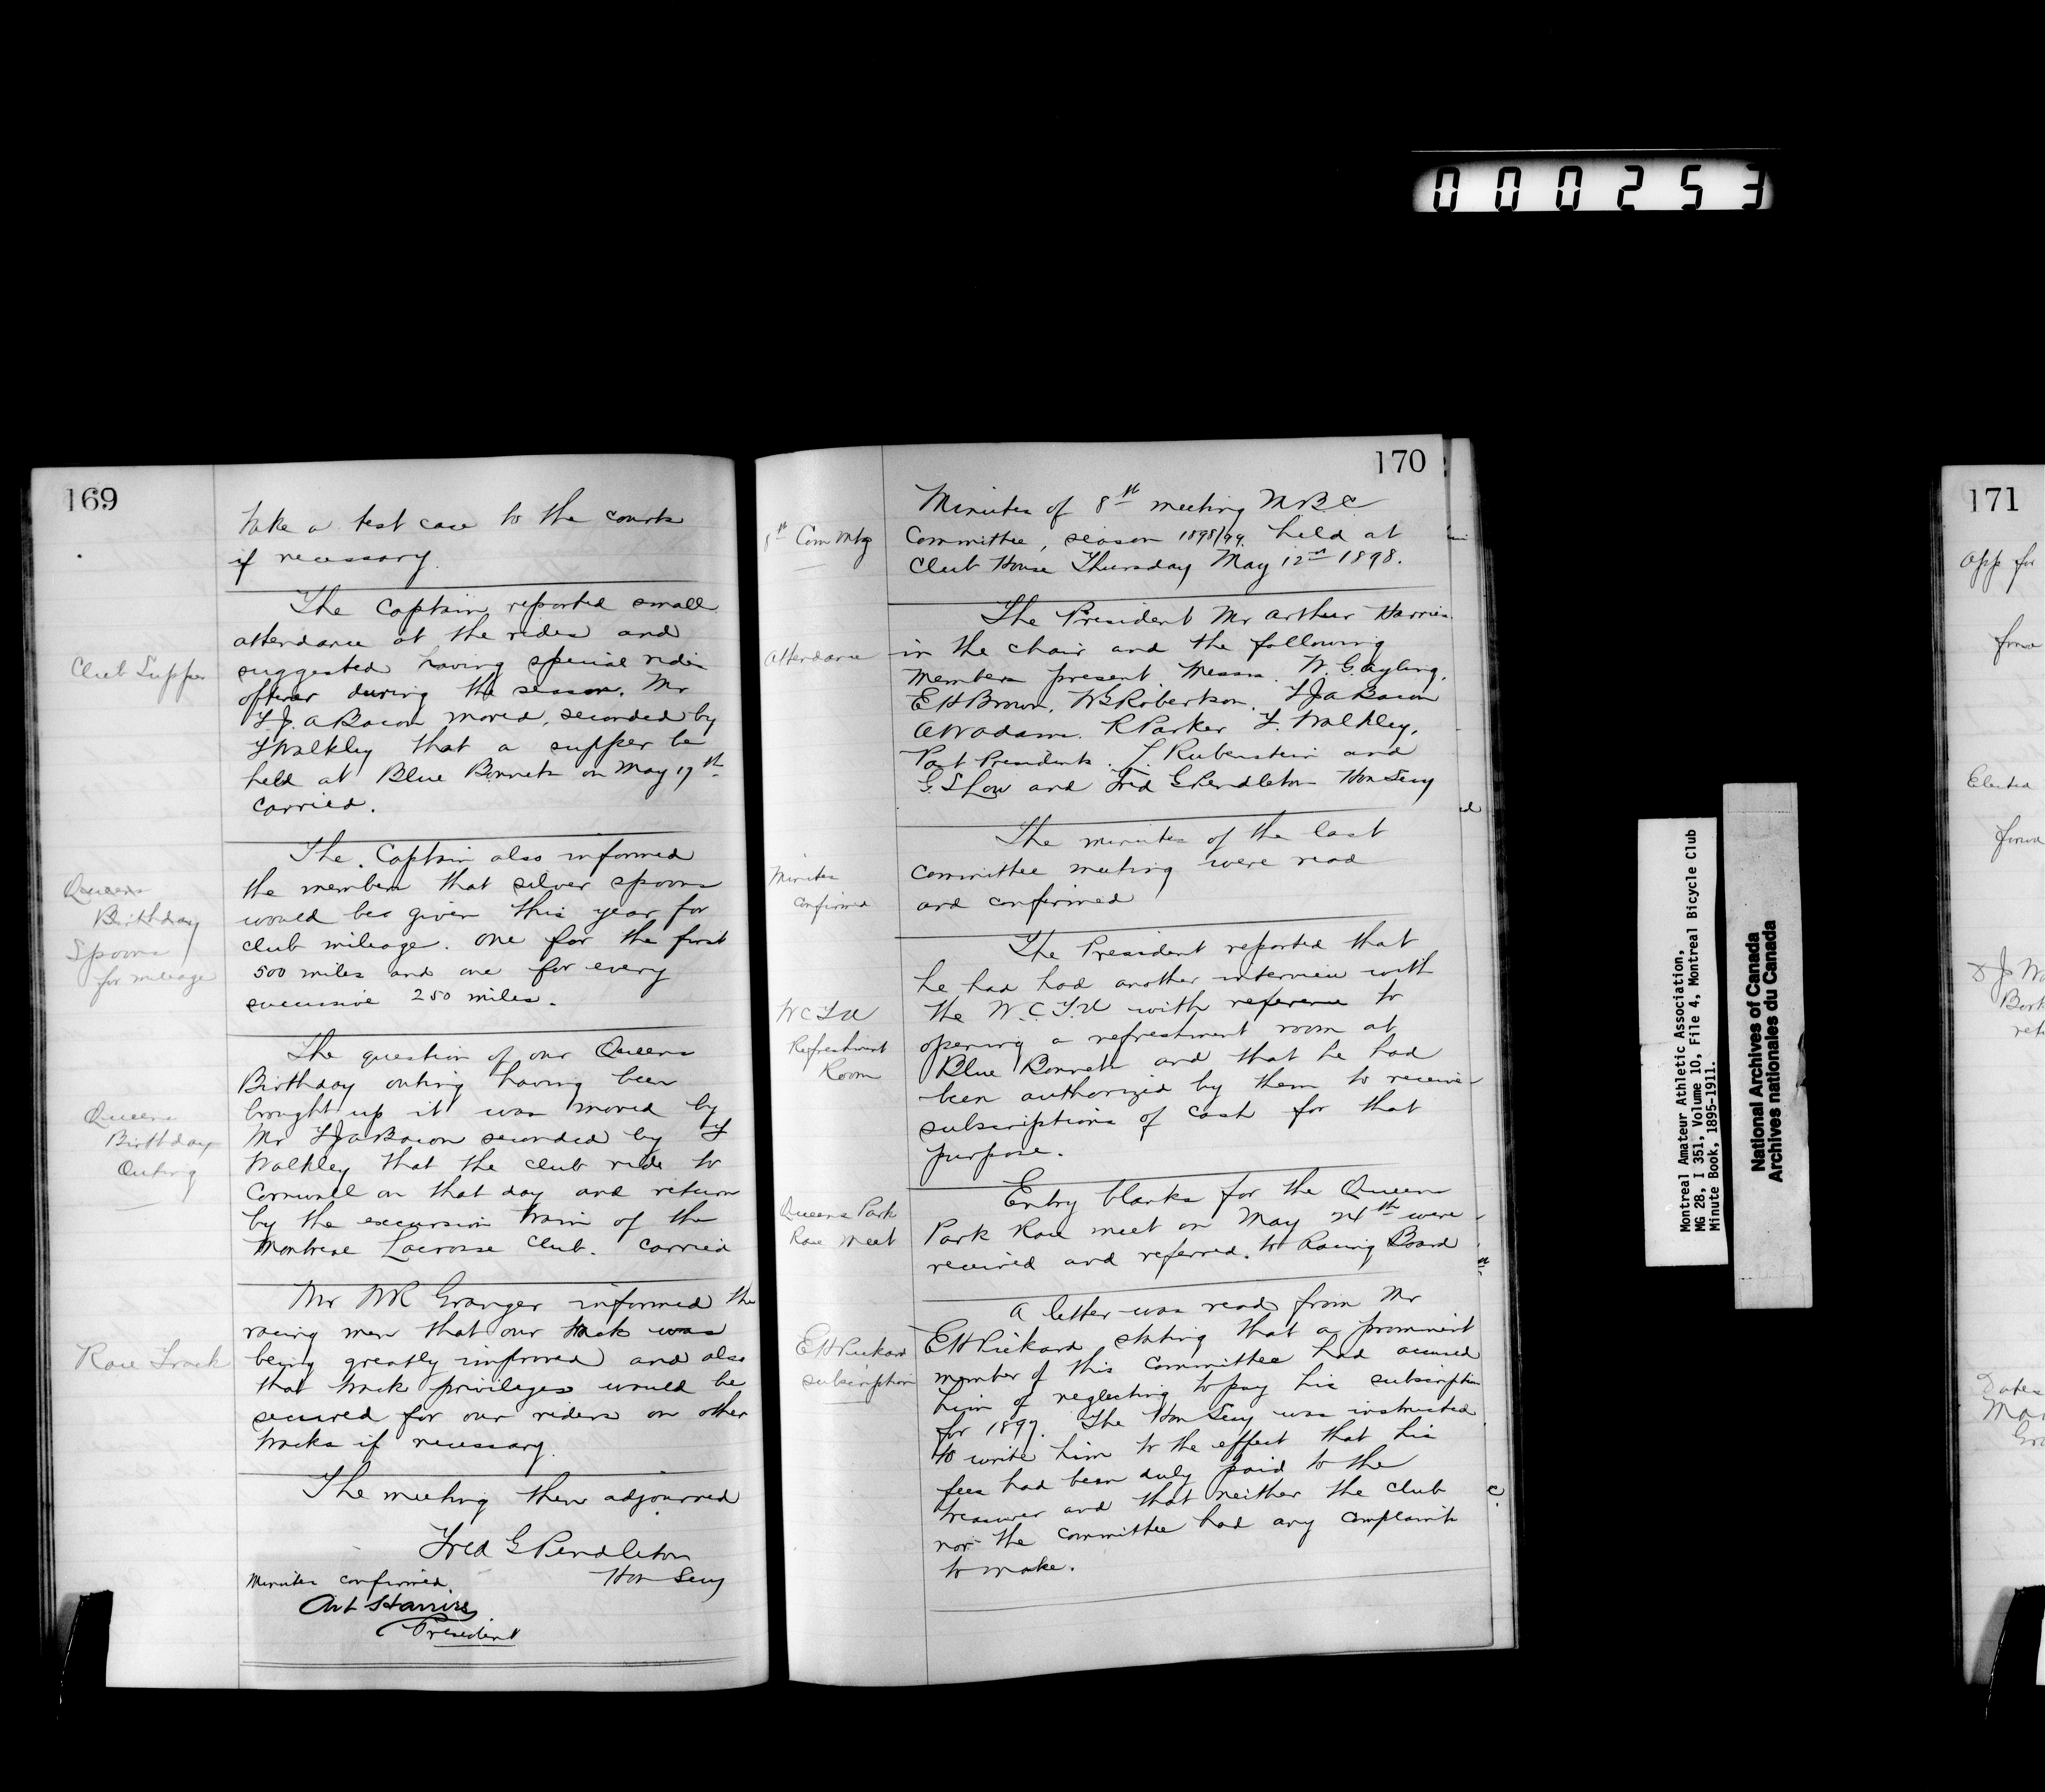 000253
169
take a test case to the courts
if necessary.
The Captain reported small
attendance at the rides and
Club Supper
suggested having special rides
oftener during the season. Mr
F.J.A Bacon moved, seconded by
F Walkley that a supper be
held at Blue Bonnets on May 17th
carried.
The Captain also informed
Queens
Birthday
Spoons
for mileage
the members that silver spoons
would be given this year for
club mileage. one for the first
500 miles and one for every
successive 250 miles.
The question of our Queens
Birthday outing having been
Queens
Birthday
Outing
brought up it was moved by
Mr FJA Bacon seconded by F
Walkley that the club ride to
Cornwall on that day and return
by the excursion train of the
Montreal Lacrosse Club. Carried
Mr WR Granger informed the
racing men that our track was
Race Track
being greatly improved and also
that track privileges would be
secured for our riders on other
tracks if necessary.
The meeting then adjourned
Fred G Pendleton
Hon Secy
Minutes confirmed.
Art Harries
President
170
8th Com Mtg
Minutes of 8th meeting M.B.C
Committee, season 1898/99. held at
Club House Thursday May 12th 1898.
The President Mr Arthur Harries
Attendance
in the chair and the following
members present. Messrs. W.G. Ayling,
E H Brown, WG Robertson, FJA Bacon
AW Adams. R Parker F. Walkley,
Past Presidents. L. Rubenstein and
G.S Low and Fred G Pendleton Hon Secy
The minutes of the last
Minutes
confirmed
committee meeting were read
and confirmed
The President reported that
he had had another interview with
W C T U
Refreshment
Room
the W.C.T.U with reference to
opening a refreshment room at
Blue Bonnets and that he had
been authorized by them to receive
subscriptions of cash for that
purpose.
Queens Park
Race Meet
Entry blanks for the Queens
Park Race meet on May 24th were
received and referred to Racing Board
A letter was read from Mr
E H Rickard
subscription
E H Rickard stating that a prominent
member of this committee had accused
him of neglecting to pay his subscription
for 1897. The Hon Secy was instructed
to write him to the effect that his
fees had been duly paid to the
treasurer and that neither the club
nor the committee had any complaint
to make.
Montreal Amateur Athletic Association,
MG 28, I 351, Volume 10, File 4, Montreal Bicycle Club
Minute Book, 1895-1911.
National Archives of Canada
Archives nationales du Canada
171
App for
Elected
Dates